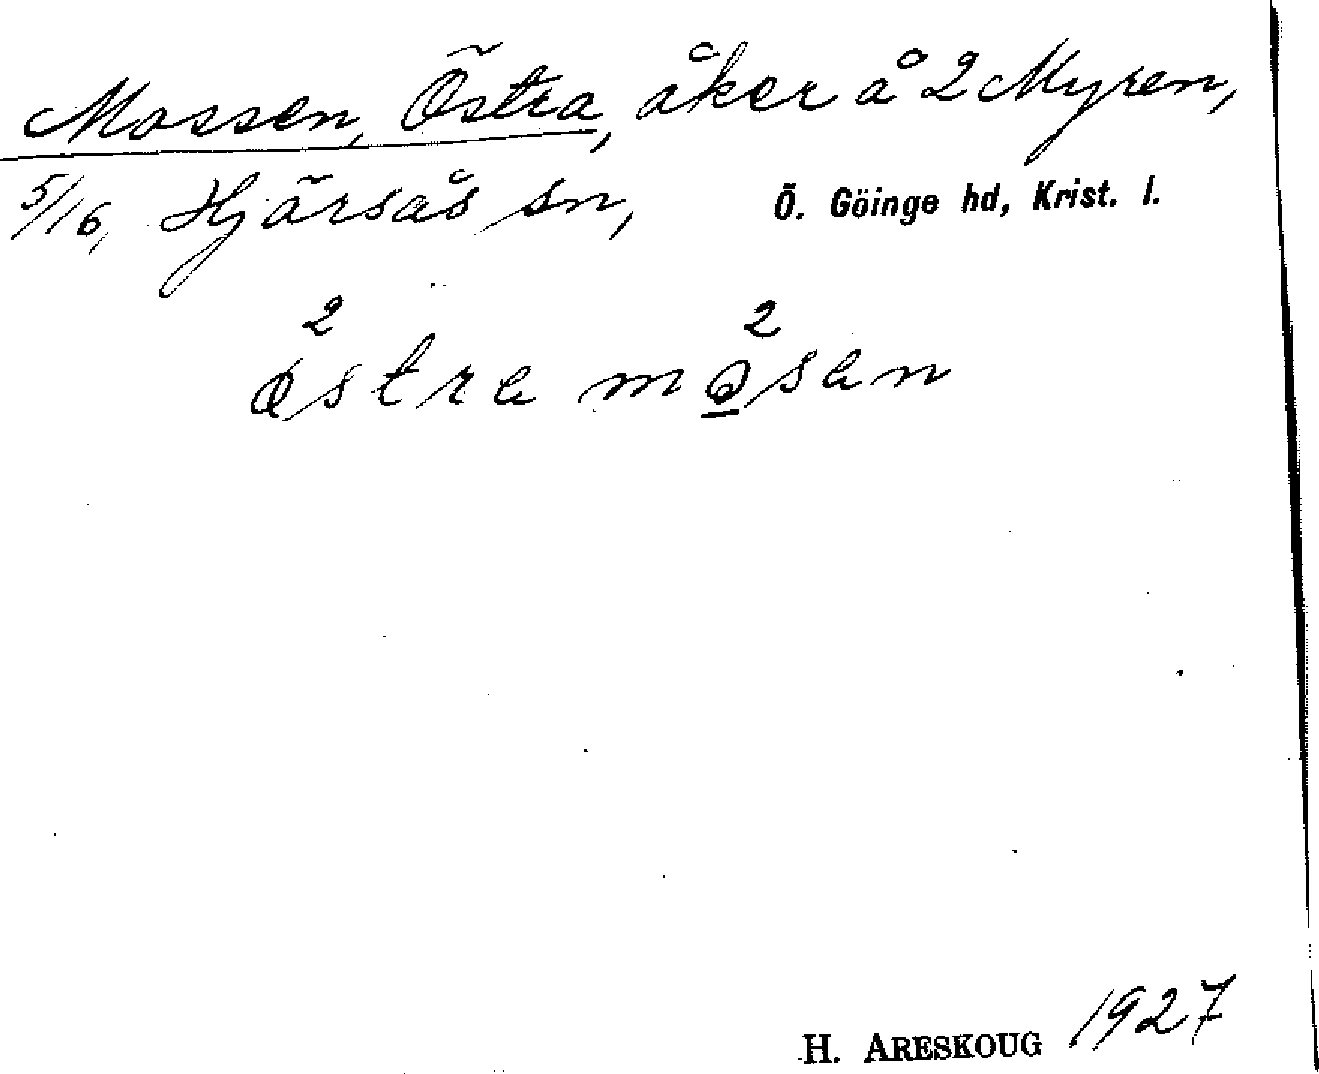 Mossen, Östra, åker å 2 Myren,
5/16, Hjärsås sn, Ö. Göinge hd, Krist. l.
2 2
østra mo̲san
H. ARESKOUG 1927